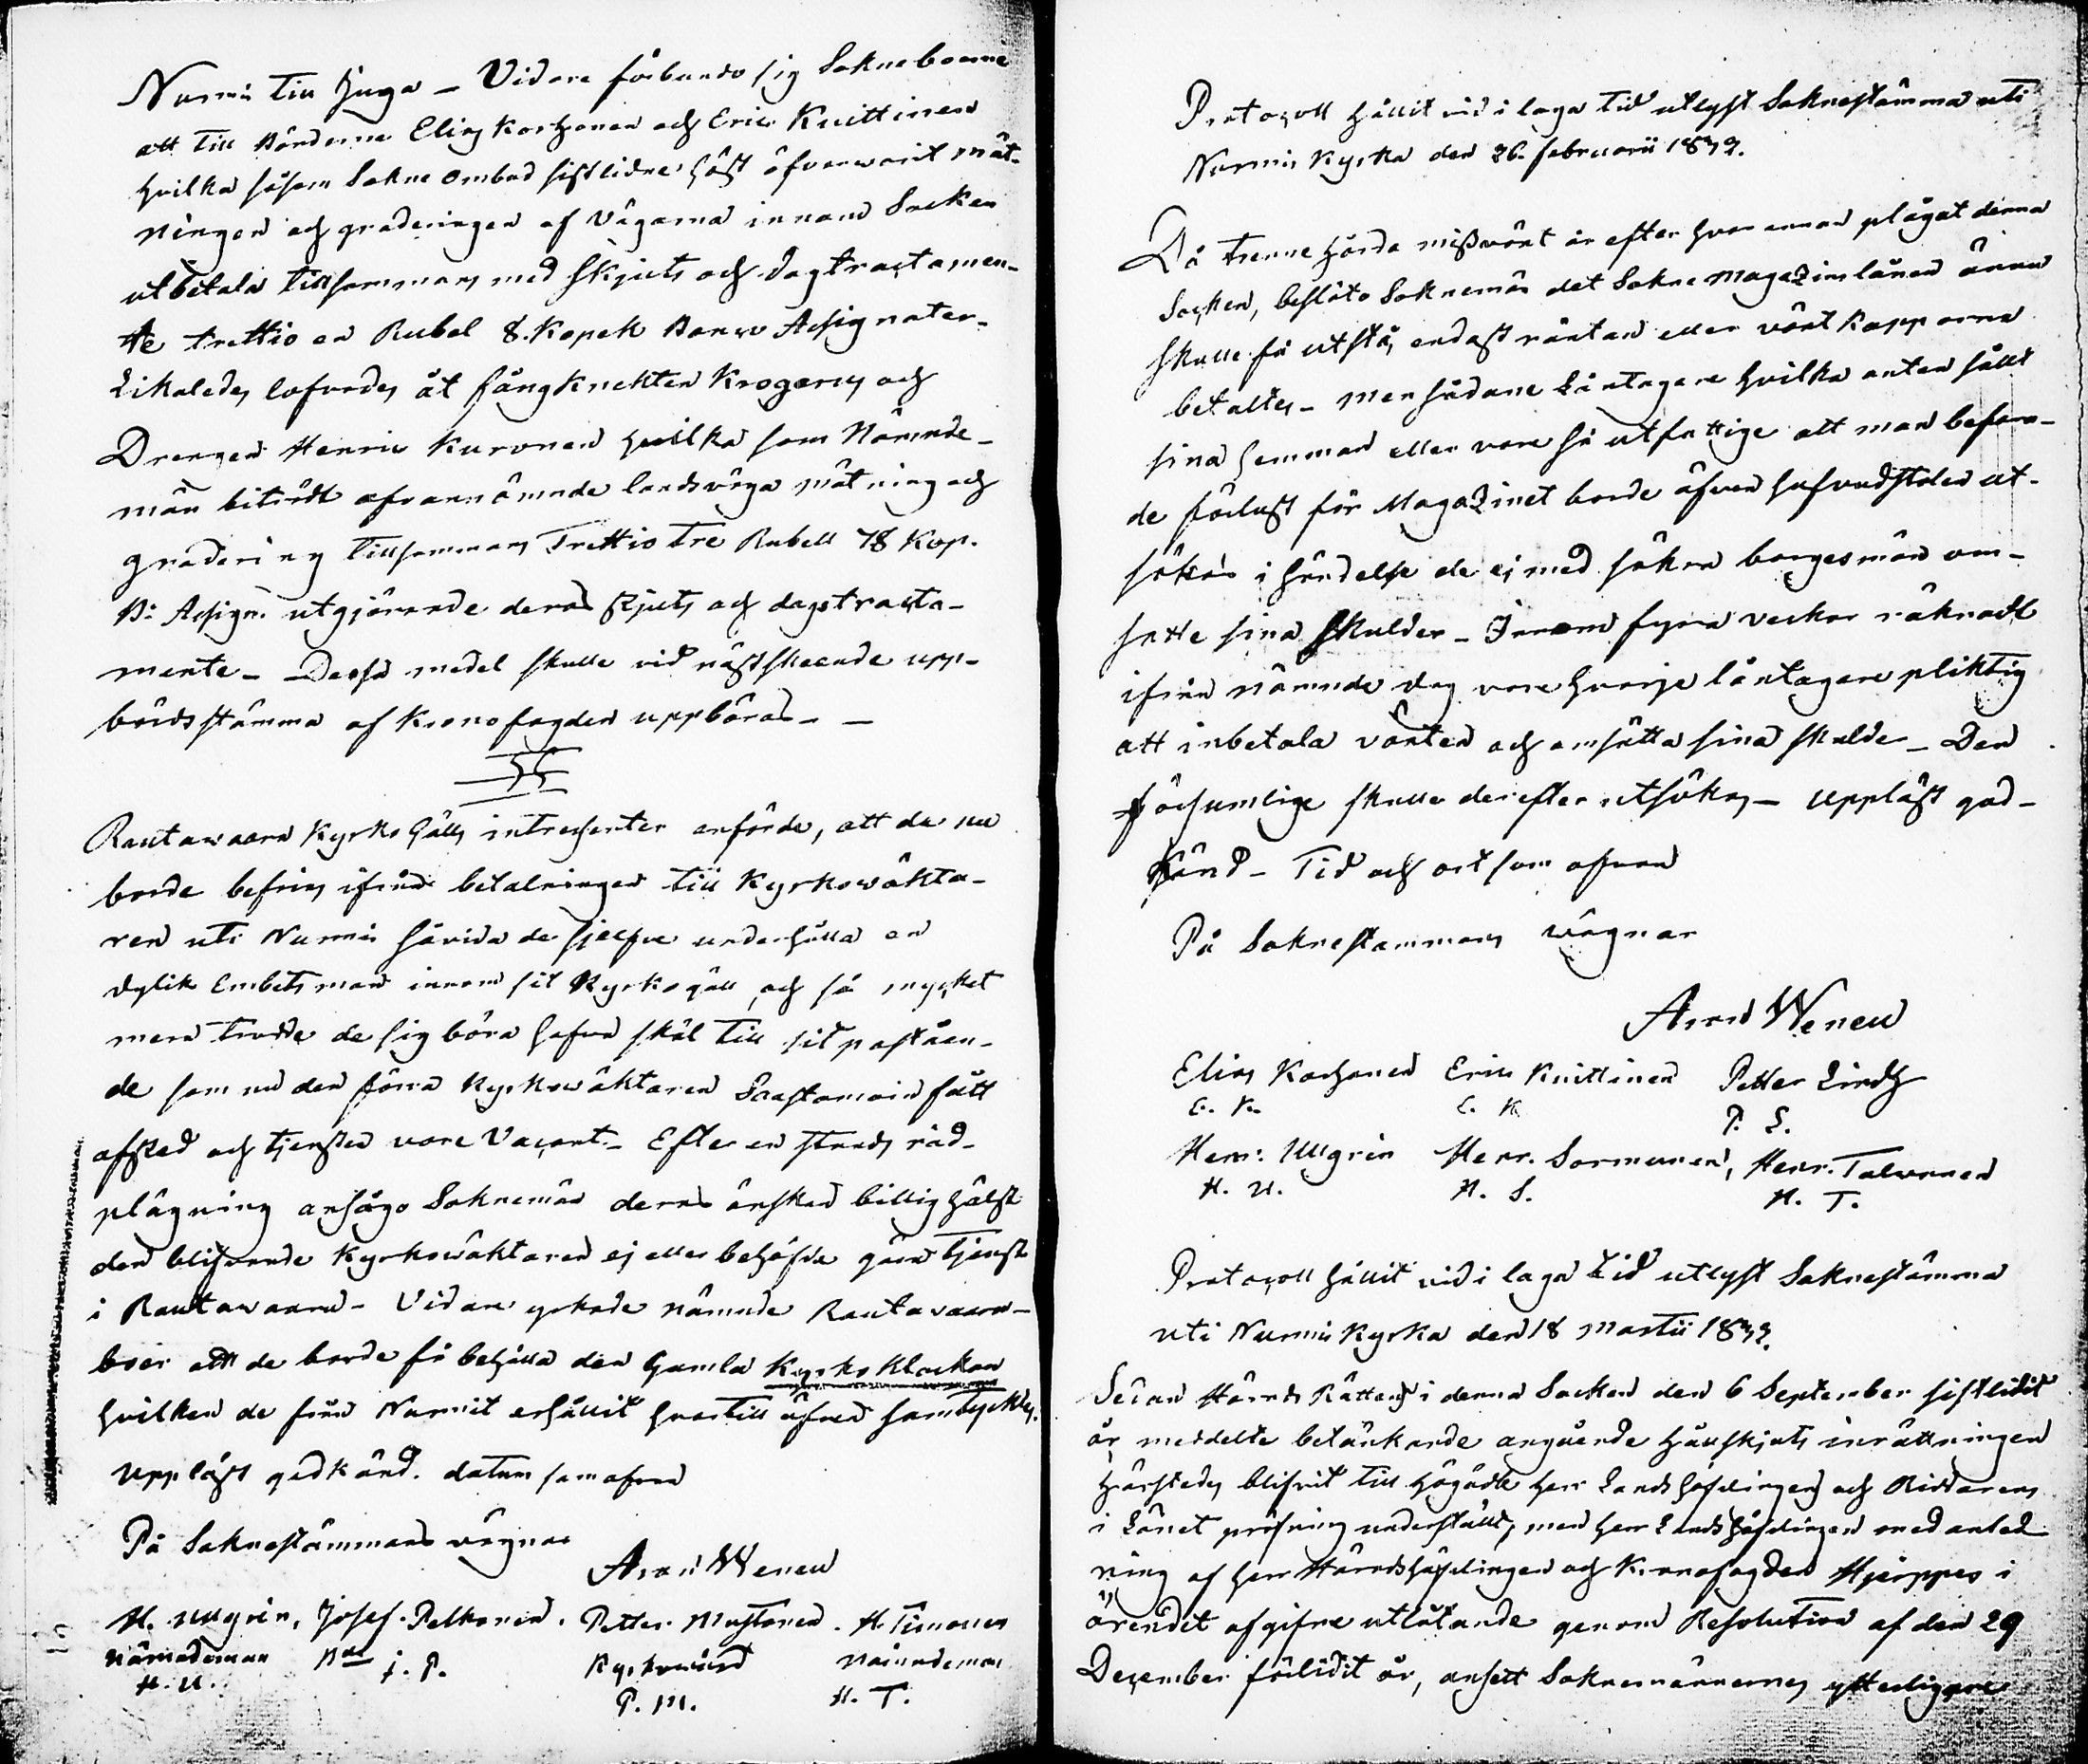 Nurmis till Juga – Vidare förbundo sig Sokneboerne
att till Bönderne Elias Korhonen och Eric Knittinen
hvilka såsom Sokne ombud sistlidne höst öfvervarit mät-
ningen och graderingen af Vägarna innom Socken
utbetala tillsammans med Skjuts och dagtractamen-
te trettio en Rubel 8. Kopek Banco Assignater.
Likaledes lofvades åt fångknekten Krogerus och
Drengen Henric Kuronen hvilka som Nämnde-
män biträdt ofvannämnde landsväga mätning och
gradering tillsammans Trettio tre Rubell 78 Kop.
B: Assign. utgjörande deras skjuts och dagstracta-
mente – Dessa medel skulle vid nästskeende upp-
bördsstämma af Kronofogden uppbäras – –
Rautawaara Kyrko Gälls intressenter anförde, att de nu
borde befrias ifrån betalningen till Kyrkowäkta-
ren uti Nurmis såvida de sjelfve underhålla en
dylik Embetsman innom sit Kyrkogäll, och så mycket
mera trodde de sig böra hafva skäl till sit påståen-
de som nu den förra Kyrkowäktaren Saastamoin fått
afsked och tjensten vore Vacant. – Efter en stunds råd-
plägning ansågo Soknemän deras önskan billig hälst
den blifvande Kyrkowäktaren ej eller behöfde göra tjenst
i Rautawaara – Vidare yrkade nämnde Rautavaara-
boer att de borde få behålla den Gamla Kyrko Klockan
hvilken de från Nurmis erhållit hvartill äfven samtycktes.
Uppläst godkänd. datum som ofvan
På Soknestämmans vägnar
Aron Wenell
H. Ullgrén, Josef Pelkonen. Petter Mustonen. H. Timonen
Nämndeman Bde J. P. Kyrkovärd Nämndeman
H. U. P. M. H. T.
Protocoll hållit vid i laga tid utlyst Soknestämma uti
Nurmis Kyrka den 26. februarii 1832.
Då trenne hårda missvext år efter hvar annan plågat denna
Socken, beslöto Soknemän det Sokne Magazins lånen ännu
skulle få utstå, endast räntan eller växt kapporna
betaltes – men sådane Låntagare hvilka anten sållt
sina hemman eller vore så utfattige att man befara-
de förlust för Magazinet borde äfven hufvudstolen ut-
sökas i händelse de ej med säkra borgesmän om-
satte sina Skulder – Innom fyra veckor räknadt
ifrån nämnde dag vore hvarje låntagare pliktig
att inbetala växten och omsätta sina skulder – Den
försumlige skulle derefter utsökas – Uppläst god-
känd – Tid och ort som ofvan
På Soknestämmans wägnar
Aron Wenell
Elias Korhonen Eric Knittinen Petter Lindh
E. K. E. K. P. L.
Henr: Ullgrén Henr. Sormunen, Henr. Talvanen
H. U. H. S. H. T.
Protocoll hållit vid i laga tid utlyst Soknestämma
uti Nurmis Kyrka den 18 Martii 1832.
Sedan Härads Rättens i denna Socken den 6 September sistlidit
år meddelte betänkande angående hållskjuts inrättningen
härstedes blifvit till högädle herr Landshöfdingen och Riddarens
i Länet pröfning underställt, men herr Landshöfdingen med anled
ning af herr Häradshöfdingen och Kronofogden Hjerppes i
ärendet afgifne utlåtande genom Resolution af den 29
December förlidit år, ansett Soknemännernes ytterligare